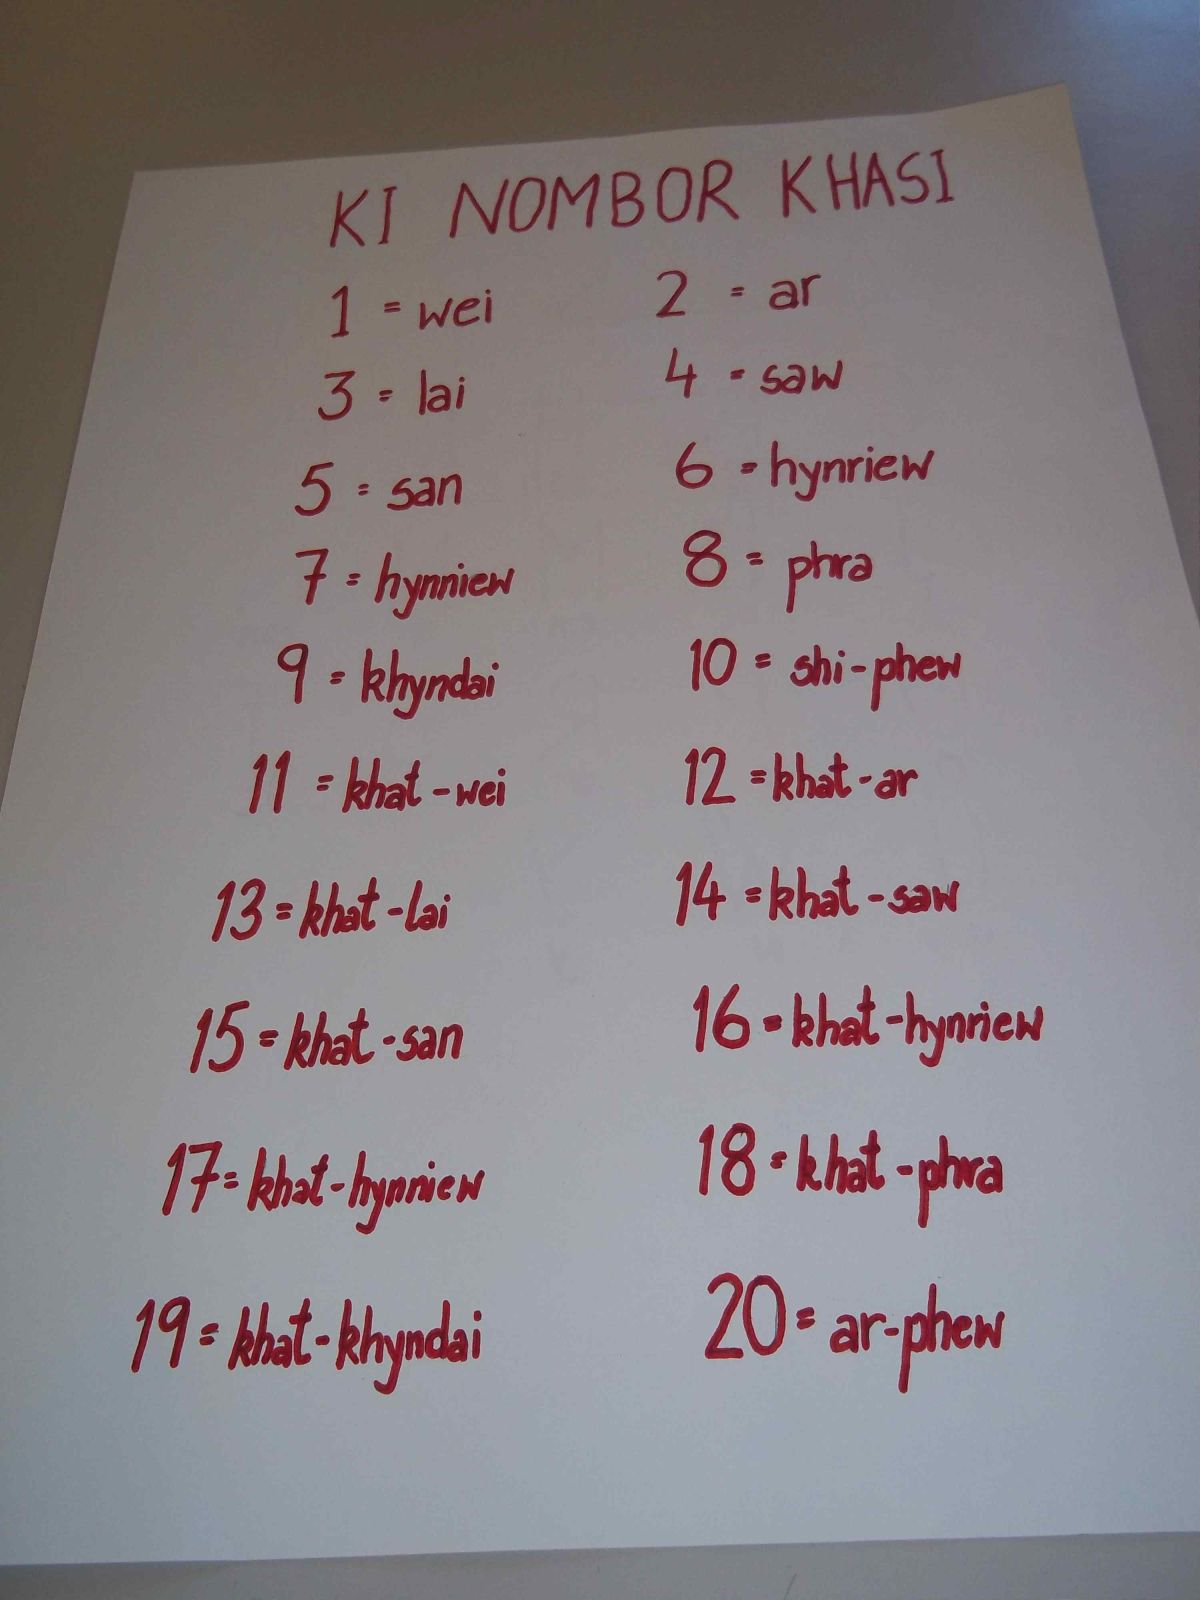 KI NOMBOR KHASI
1 = wei 2 = ar
3 = lai 4 = saw
5 = san 6 = hynriew
7 = hynniew 8 = phra
9 = khyndai 10 = shi-phew
11 = khat-wei 12 = khat-ar
13 = khat-lai 14 = khat-saw
15 = khat-san 16 = khat-hynriew
17 = khat-hynniew 18 = khat-phra
19 = khat-khyndai 20 = ar-phew